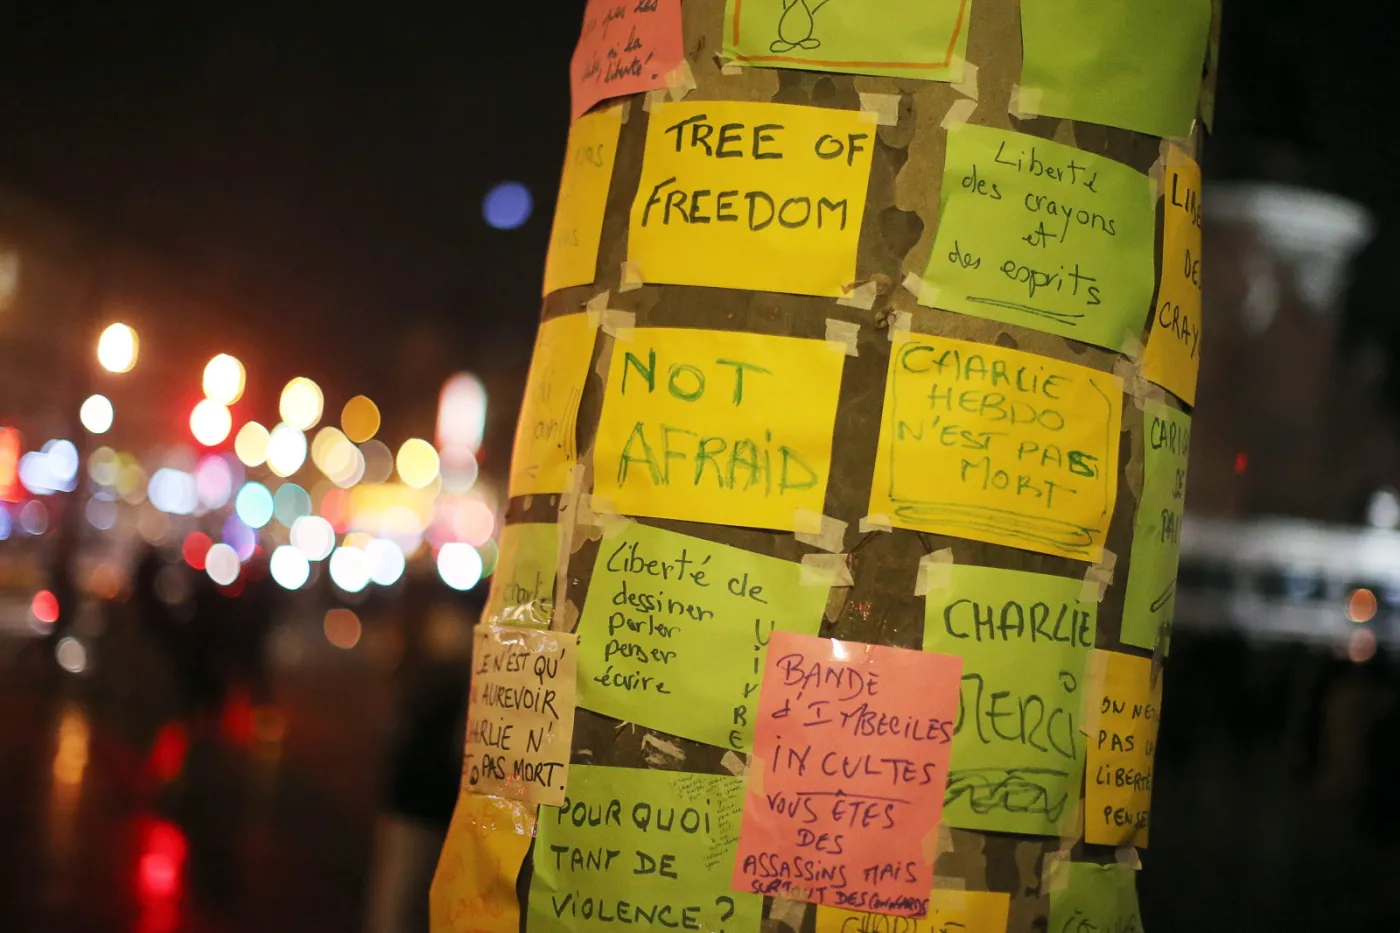 pas les
ni la
liberté!
pas
TREE OF
FREEDOM
Liberté
des crayons
et
des esprits
LIBE
DE
CRAY
NOT
AFRAID
CHARLIE
HEBDO
N'EST PAS
MORT
Liberté de
dessiner
parler
penser
écrire
VIVRE
charlie
CE N'EST QU'
AUREVOIR
CHARLIE N'
PAS MORT
BANDE
d'IMBECILES
INCULTES
VOUS ÊTES
DES
ASSASSINS MAIS
SURTOUT DES CONNARDS
CHARLIE
MERCI
ON NE
PAS LA
LIBERTÉ
PENSE
POURQUOI
TANT DE
VIOLENCE?
CHARLIE